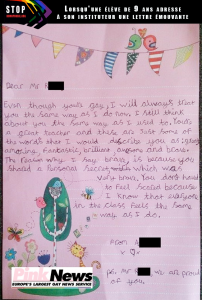 STOP
LORSQU'UNE ÉLÈVE DE 9 ANS ADRESSE
À SON INSTITUTEUR UNE LETTRE ÉMOUVANTE
Dear Mr
Even though you're gay, I will always treat
you the same way as I do now. I still think
about you the same way as I used to. You're
a great teacher and these are just some of
the words that I would describe you as: great,
amazing, fantastic, brilliant, awesome and brave.
The reason why I say brave is because you
shared a personal secret which was
very brave. You don't have
to feel scared because
I know that everyone
in the class feels the same
way as I do.
From A
x
P.S. Mr we are proud
of you.
PinkNews
EUROPE'S LARGEST GAY NEWS SERVICE